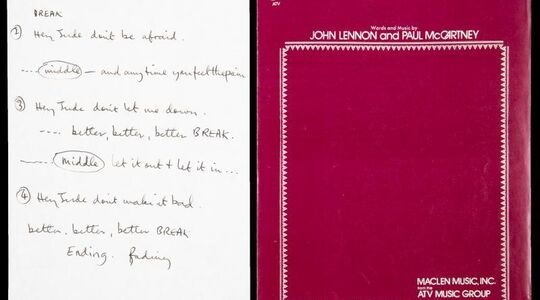 BREAK
② Hey Jude don't be afraid.
.... middle — and anytime you feel the pain
③ Hey Jude don't let me down.
.... better, better, better BREAK.
...... middle let it out & let it in ...
④ Hey Jude don't make it bad.
better, better, better BREAK
Ending. fading
ATV
Words and Music by
JOHN LENNON and PAUL McCARTNEY
MACLEN MUSIC, INC.
from the
ATV MUSIC GROUP